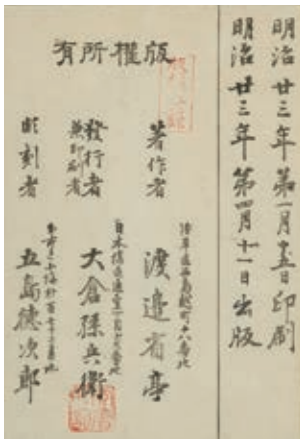 明治廿三年第一月十五日印刷
明治廿三年第四月十一日出版
版權所有
著作者
渡邉省亭
發行者
兼印刷者
日本橋區通壹丁目十九番地
大倉孫兵衛
彫刻者
五島德次郎